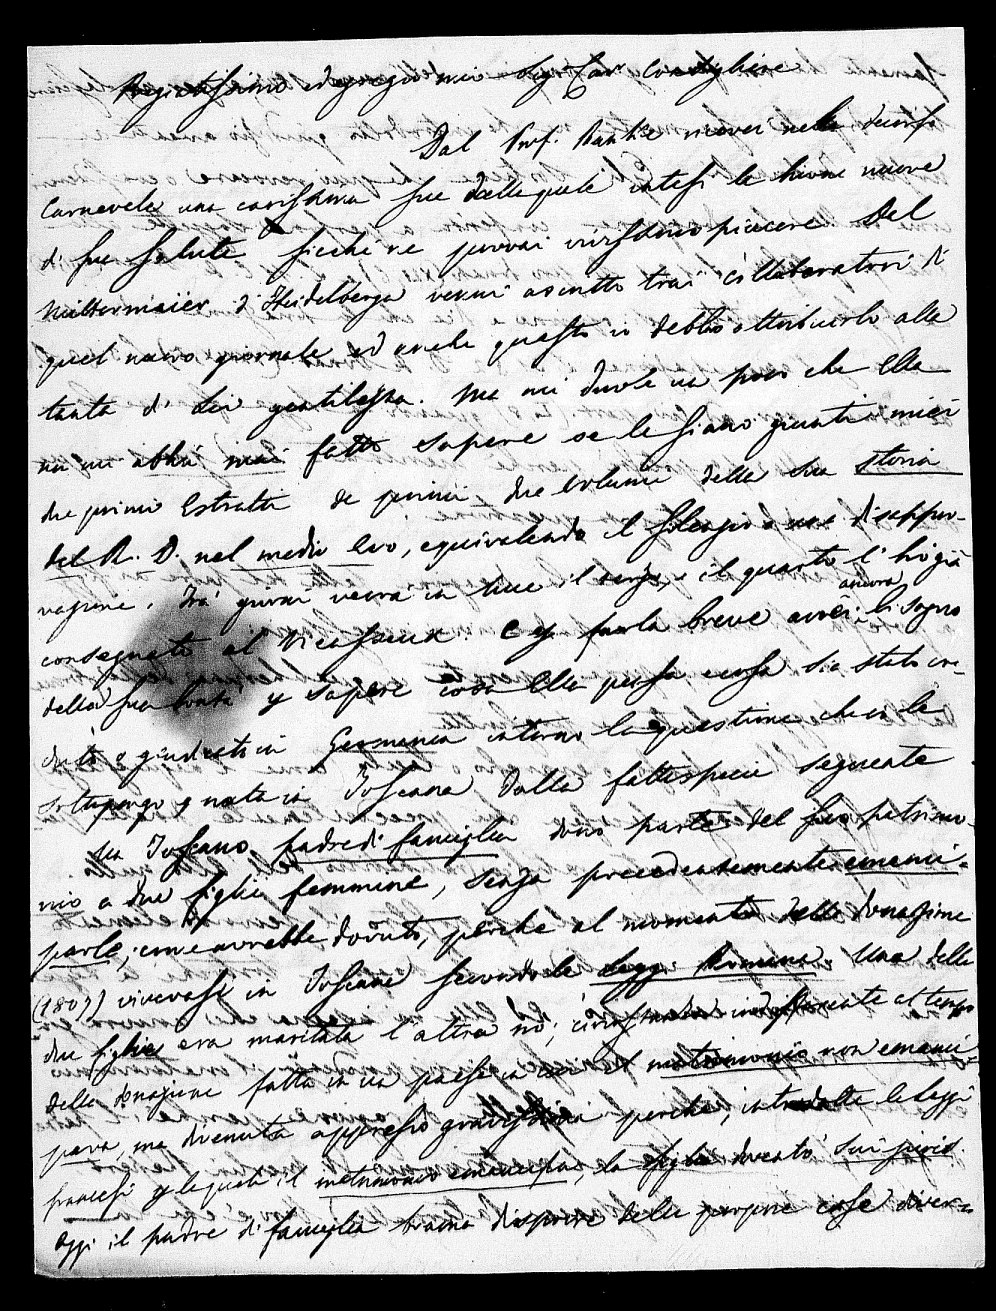 Pregiatissimo ed egregio mio Sig. Cav. Consigliere
Dal Prof. ricevei nello decorso
Carnevale una carissima sua dalla quale intesi le buone nuove
di sua salute sicchè ne provai vivissimo piacere. Dal
Mittermaier d'Heidelberga venni ascritto trai collaboratori di
quel nuovo giornale ed anche questo io debbo attribuirlo alla
tanta di Lei gentilezza. Ma mi duole un poco che Ella
non mi abbia mai fatto sapere se le siano giunti i miei
due primi Estratti de primi due volumi della sua storia
del R. D. nel medio Evo, equivalendo il silenzio a una disappro-
vazione. Trà giorni verrà in luce il terzo, e il quarto l'hò già
consegnato al Vieusseux. E p. farla breve avrei ancora bisogno
della sua bontà p sapere cosa Ella pensa e cosa sia stato cre-
duto e giudicato in Germania intorno la questione che io le
sottopongo e nata in Toscana dalla fattispecie seguente
Un Toscano padre di famiglia donò parte del suo patrimo-
nio a due figlie femmine, senza precedentemente emanci-
parle, come avrebbe dovuto, perche al momento della donazione
(1807) vivevasi in Toscana secondo le Leggi Romane. Una delle
due figlie era maritata l'altra nò; circostanza indifferente al tempo
della donazione fatta in un paese in cui il matrimonio non emanci-
pava, ma divenuta appresso gravissima perchè, introdotte le Leggi
francesi p le quali il matrimonio emancipa, la figlia diventò sui juris
Oggi il padre di famiglia brama disporre delle proprie cose diver-